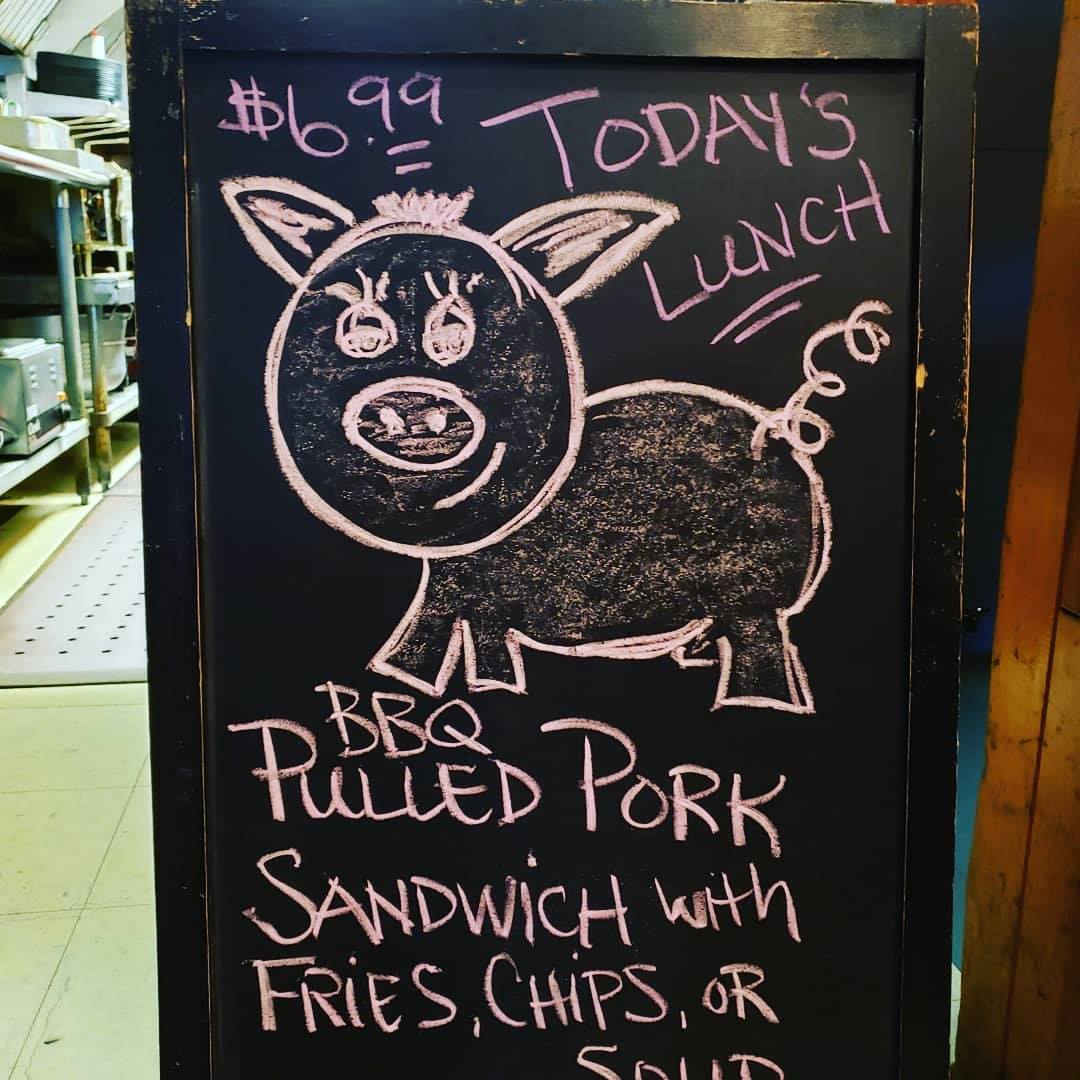 $6.99 TODAY'S
LUNCH
BBQ
PULLED PORK
SANDWICH WITH
FRIES, CHIPS, OR
SOUP